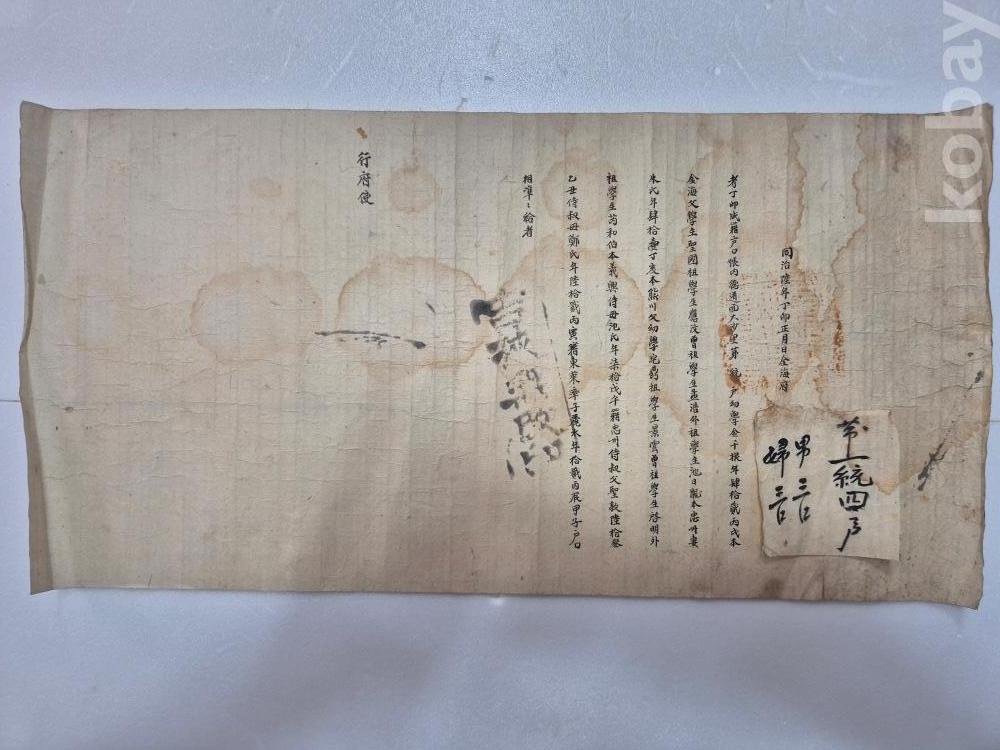 第一統四戶
男三口
婦三口
同治陸年丁卯正月日金海府
考丁卯成籍戶口帳內德道面大沙里第 統 戶幼學金千根年肆拾貳丙戌本
金海父學生聖國祖學生應茂曾祖學生孟浩外祖學生池日龍本忠州妻
朱氏年肆拾壹丁亥本熊川父幼學宅 祖學生景雲曾祖學生啓明外
祖學生芮和伯本義興侍母池氏年柒拾戊午籍忠州侍叔父聖敦陸拾叄
乙丑侍叔母鄭氏年陸拾貳丙寅籍東萊率子 年拾貳丙辰甲子戶口
相準〻給者
行府使
kobay